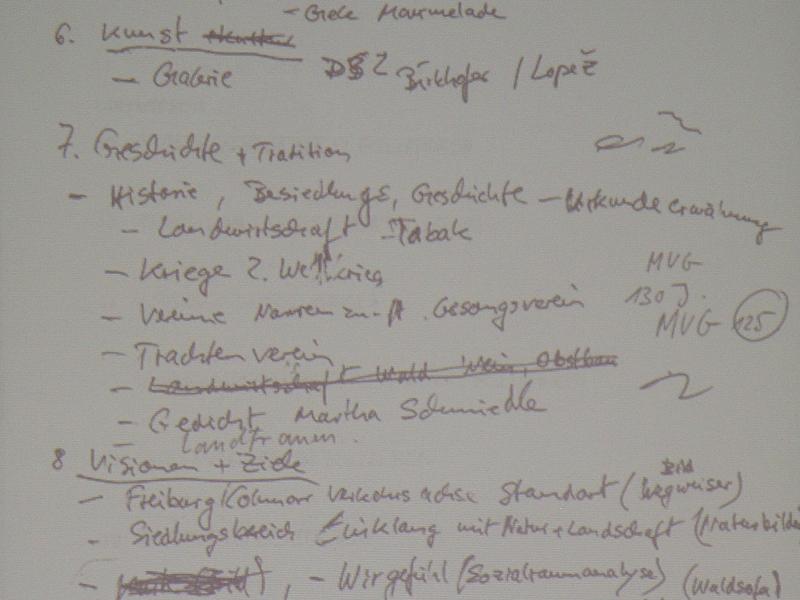 - Gele Marmelade
6. Kunst
- Galerie Birkhofer / Lopež
7. Geschichte + Tratition
- Historie, Besiedlungs, Geschichte - Urkunde erwähnung
- Landwirtschaft - Tabak
- Kriege 2. Weltkrieg
MVG
- Vereine Narrenzunft Gesangsverein 130 J.
MVG 125
- Trachtenverein
- Landwirtschaft Wald Wein, Obstbau
- Gedicht Martha Schmiedle
- Landfrauen.
8 Visionen + Ziele
Bild
- Freiburg/Colmar Verkehrsachse Standort (Wegweiser)
- Siedlungsbereich Einklang mit Natur + Landschaft (Naturbilder
- , - Wirgefühl (Sozialraumanalyse) (Waldsofa)